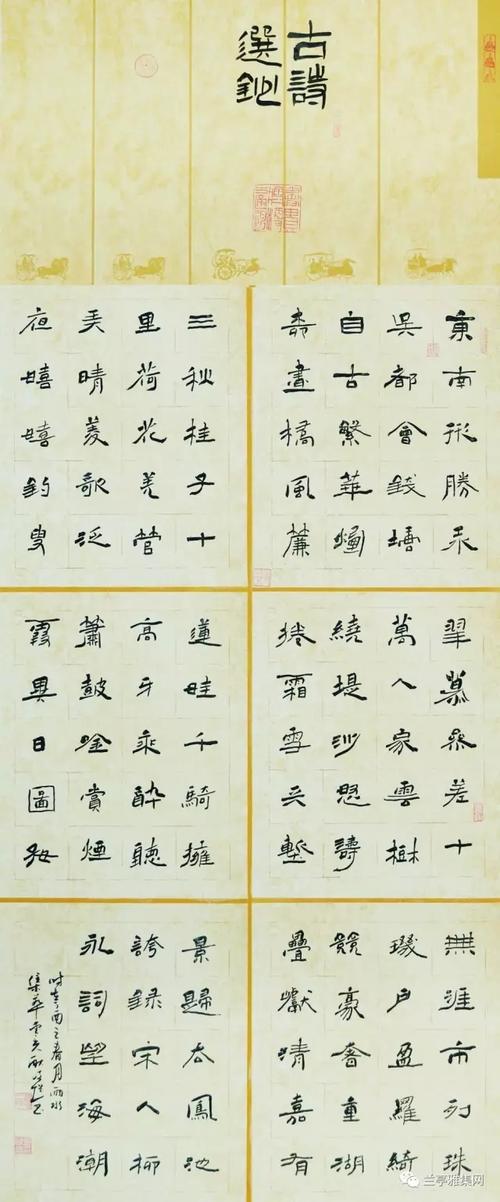 古詩
選鈔
東南形勝
吳都會錢塘
自古繁華煙
柳畫橋風簾
翠幕參差十
萬人家雲樹
繞堤沙怒濤
捲霜雪天塹
無涯市列珠
璣戶盈羅綺
競豪奢重湖
疊巘清嘉有
三秋桂子十
里荷花羌管
弄晴菱歌泛
夜嬉嬉釣叟
蓮娃千騎擁
高牙乘醉聽
簫鼓吟賞煙
霞異日圖將
景歸去鳳池
誇錄宋人柳
永詞望海潮
酉之春月雨水
兰亭雅集网